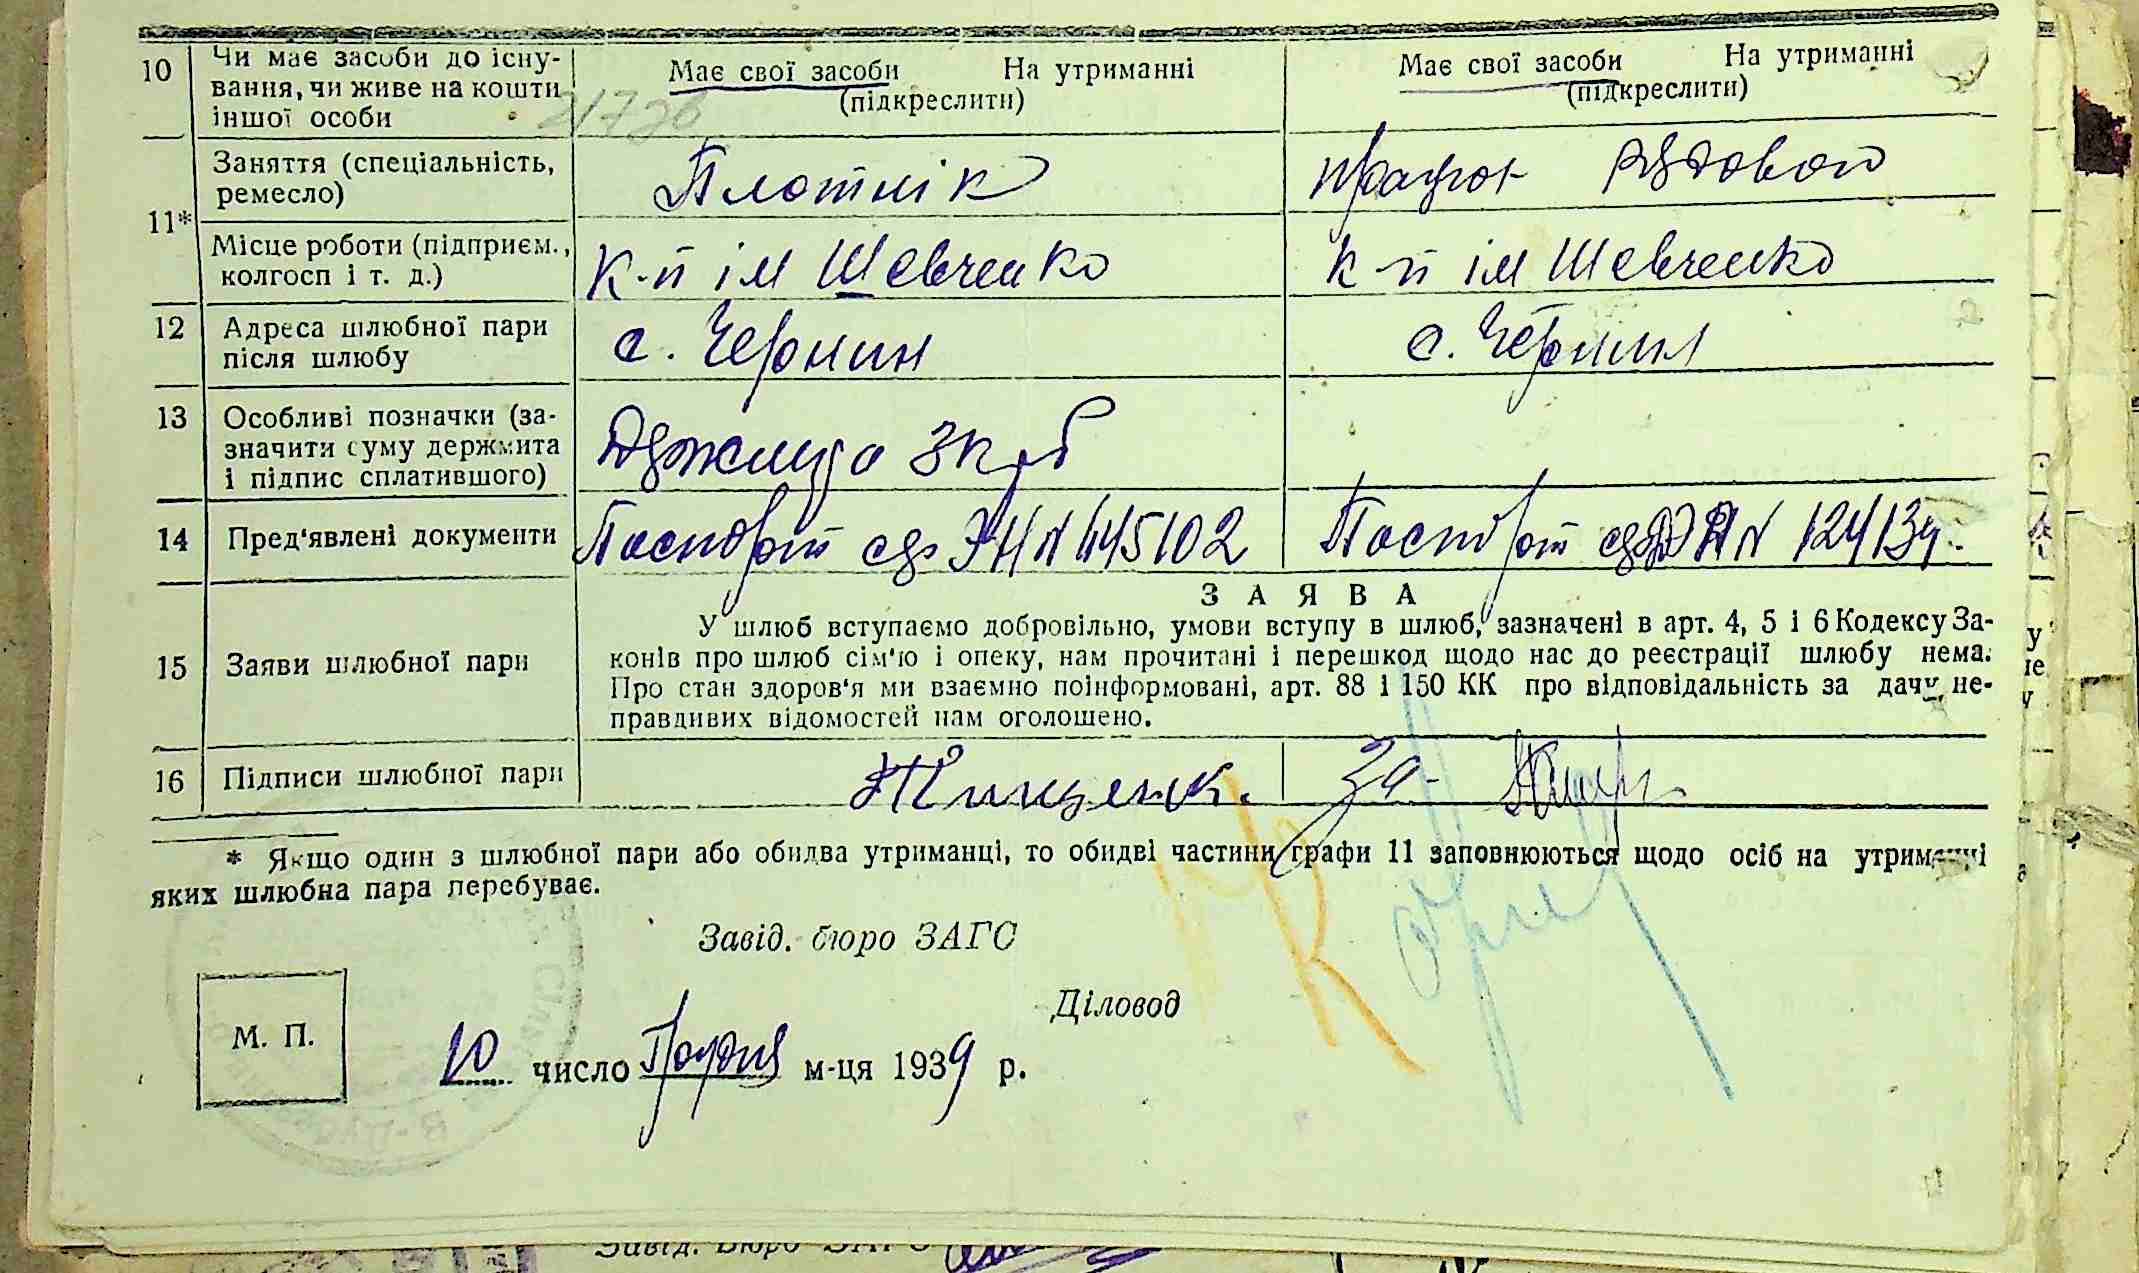 10 Чи має засоби до існу-
вання, чи живе на кошти
іншої особи
Має свої засоби На утриманні
(підкреслити)
Має свої засоби На утриманні
(підкреслити)
11*
Заняття (спеціальність,
ремесло)
Плотнік
рядовой
Місце роботи (підприєм.,
колгосп і т. д.)
К-п ім Шевченко
к-п ім Шевченко
12 Адреса шлюбної пари
після шлюбу
с. Чернин
с. Чернин
13 Особливі позначки (за-
значити суму держмита
і підпис сплатившого)
Держмита 3 крб
14 Пред'явлені документи
Паспорт N 445102
Паспорт N 124134
ЗАЯВА
15 Заяви шлюбної пари
У шлюб вступаємо добровільно, умови вступу в шлюб, зазначені в арт. 4, 5 і 6 Кодексу За-
конів про шлюб сім'ю і опеку, нам прочитані і перешкод щодо нас до реєстрації шлюбу нема.
Про стан здоров'я ми взаємно поінформовані, арт. 88 і 150 КК про відповідальність за дачу не-
правдивих відомостей нам оголошено.
16 Підписи шлюбної пари
За
* Якщо один з шлюбної пари або обидва утриманці, то обидві частини графи 11 заповнюються щодо осіб на утриманні
яких шлюбна пара перебуває.
Завід. бюро ЗАГС
Діловод
М. П.
10 число м-ця 1939 р.
Завід. Бюро ЗАГС